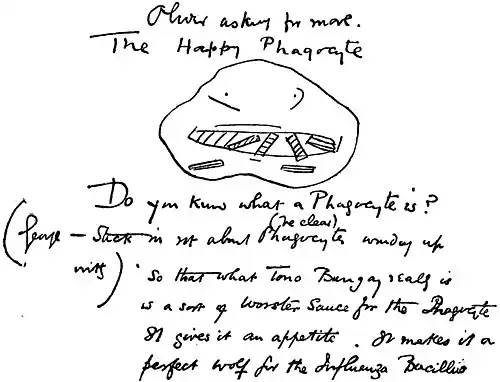 Oliver asking for more.
The Happy Phagocyte
Do you know what a Phagocyte is?
(re clear)
(George — Stick in rot about Phagocytes winding up
with)
So that what Tono Bungay really is
is a sort of Worster Sauce for the Phagocyte
It gives it an appetite. It makes it a
perfect wolf for the Influenza Bacillus